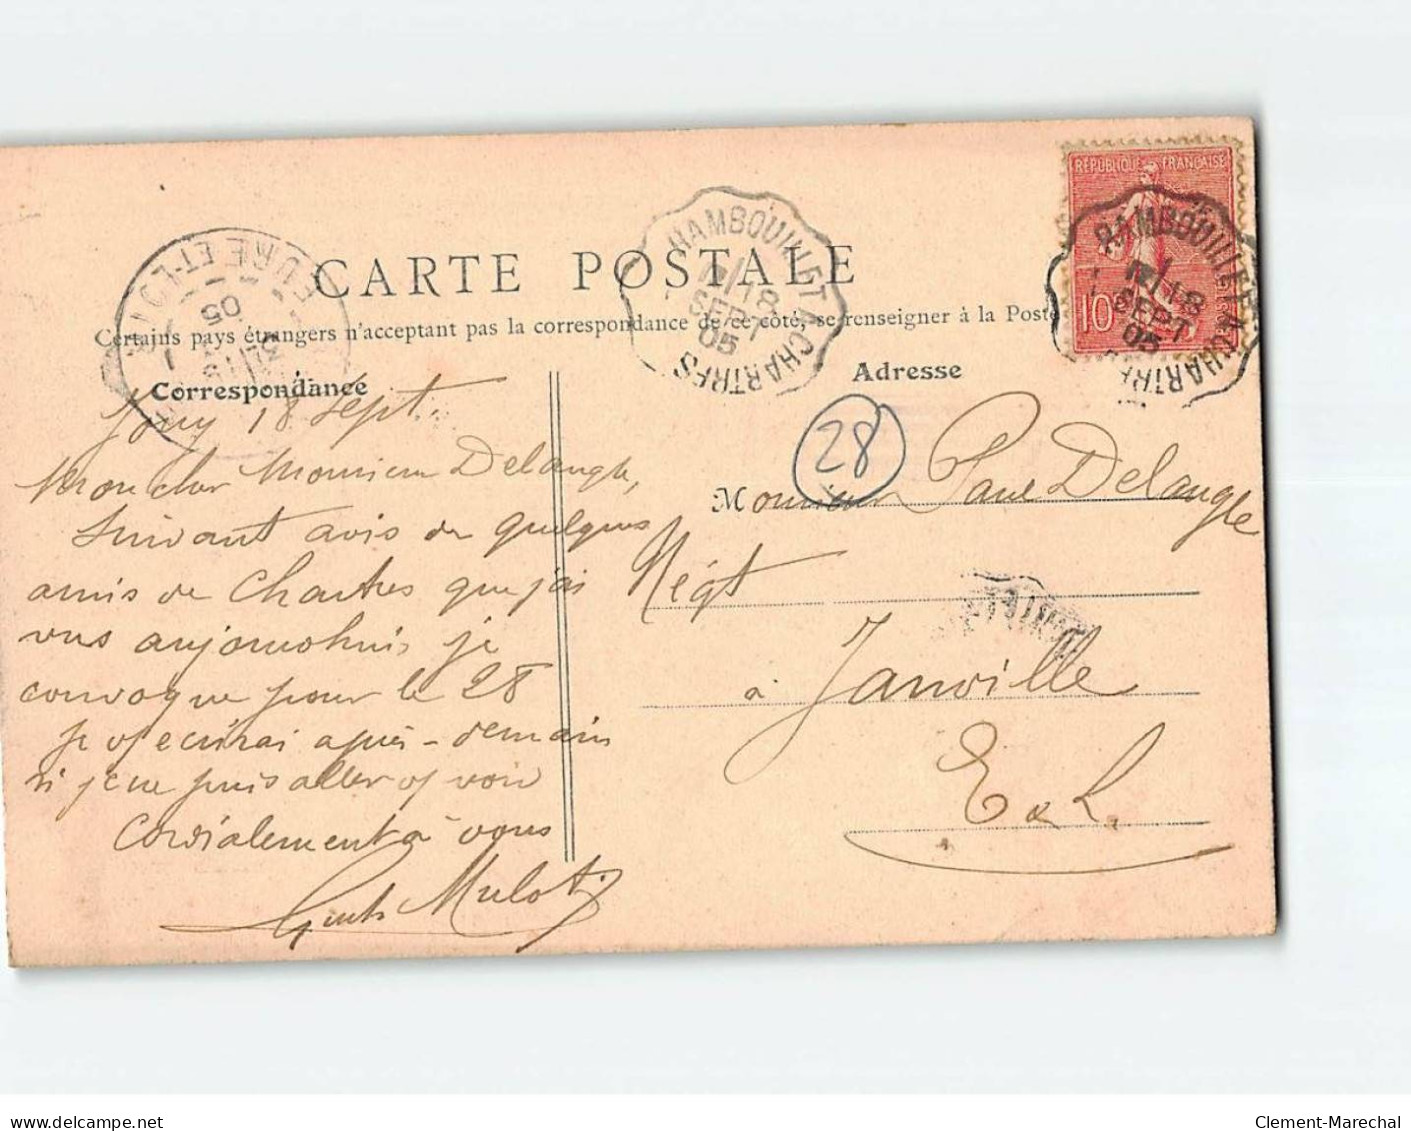 CARTE POSTALE
Certains pays étrangers n'acceptant pas la correspondance de ce côté, se renseigner à la Poste
Correspondance
Jouy 18 Sept.
Mon cher Monsieur Delangle,
Suivant avis de quelques
amis de Chartres que j'ai
vus aujourd'hui, je
convoque pour le 28
Je vs écrirai après-demain
si je ne puis aller vs voir
Cordialement à vous
Mulot
Adresse
28
Monsieur Paul Delangle
Négt
à Janville
E & L.
RÉPUBLIQUE FRANÇAISE
10
RAMBOUILLET A CHARTRES
18
SEPT
05
RAMBOUILLET A CHARTRES
18
SEPT
05
EURE-ET-LOIR
05
delcampe.net
Clement-Marechal